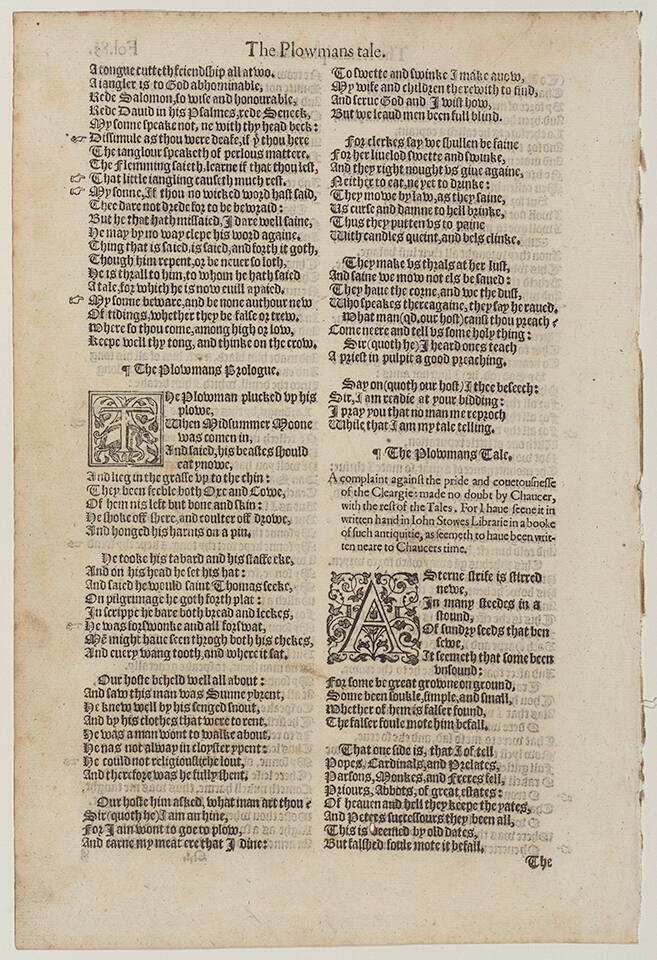 The Plowmans tale.
A tongue cutteth friendship all at wo.
A iangler is to God abhominable,
Rede Salomon, so wise and honourable,
Rede Dauid in his Psalmes, rede Seneck,
My sonne speake not, ne with thy head beck:
Dissimule as thou were deafe, if yͭ thou here
The ianglour speaketh of perlous mattere.
The Flemming saieth, learne if that thou lest,
That little iangling causeth much rest.
My sonne, If thou no wicked word hast said,
Thee dare not drede for to be bewraid:
But he that hath missaied, I dare well saine,
He may by no way clepe his word againe.
Thing that is saied, is saied, and forth it goth,
Though him repent, or be neuer so loth,
He is thrall to him, to whom he hath saied
A tale, for which he is now euill apaied.
My sonne beware, and be none authour new
Of tidings, whether they be false or trew.
Where so thou come, among high or low,
Keepe well thy tong, and thinke on the crow.
¶ The Plowmans Prologue.
THe Plowman plucked vp his
plowe,
When Midsummer Moone
was comen in,
And saied, his beastes should
eat ynowe,
And lieg in the grasse vp to the chin:
They been feeble both Oxe and Cowe,
Of hem nis left but bone and skin:
He shoke off shere, and coulter off drowe,
And honged his harnis on a pin.
He tooke his tabard and his staffe eke,
And on his head he set his hat:
And saied he would saint Thomas seeke,
On pilgrimage he goth forth plat:
In scrippe he bare both bread and leekes,
He was forswonke and all forswat,
Mē might haue seen throgh both his chekes,
And euery wang tooth, and where it sat.
Our hoste beheld well all about:
And saw this man was Sunne ybrent,
He knew well by his senged snout,
And by his clothes that were to rent,
He was a man wont to walke about,
He nas not alway in cloyster ypent:
He could not religiousliche lout,
And therefore was he fully shent.
Our hoste him asked, what man art thou?
Sir (quoth he) I am an hine,
For I am wont to goe to plow,
And earne my meat ere that I dine:
To swette and swinke I make auow,
My wife and children therewith to find,
And serue God and I wist how,
But we leaud men been full blind.
For clerkes say we shullen be faine
For her liuelod swette and swinke,
And they right nought vs giue againe,
Neither to eat, ne yet to drinke:
They mowe by law, as they saine,
Us curse and damne to hell brinke,
Thus they putten vs to paine
With candles queint, and bels clinke.
They make vs thrals at her lust,
And saine we mow not els be saued:
They haue the corne, and we the dust,
Who speakes thereagaine, they say he raued.
What man (qd. our host) canst thou preach?
Come neere and tell vs some holy thing:
Sir (quoth he) I heard ones teach
A priest in pulpit a good preaching.
Say on (quoth our host) I thee beseech:
Sir, I am readie at your bidding:
I pray you that no man me reproch
While that I am my tale telling.
¶ The Plowmans Tale.
A complaint against the pride and couetousnesse
of the Cleargie: made no doubt by Chaucer,
with the rest of the Tales. For I haue seene it in
written hand in Iohn Stowes Librarie in a booke
of such antiquitie, as seemeth to haue been writ-
ten neare to Chaucers time.
A Sterne strife is stirred
newe,
In many steedes in a
stound,
Of sundry seeds that ben
sewe,
It seemeth that some been
vnsound:
For some be great growne on ground,
Some been soukle, simple, and small,
Whether of hem is falser found,
The falser foule mote him befall.
That one side is, that I of tell
Popes, Cardinals, and Prelates,
Parsons, Monkes, and Freres fell,
Priours, Abbots, of great estates:
Of heauen and hell they keepe the yates,
And Peters successours they been all,
This is deemed by old dates,
But falshed foule mote it befall.
The